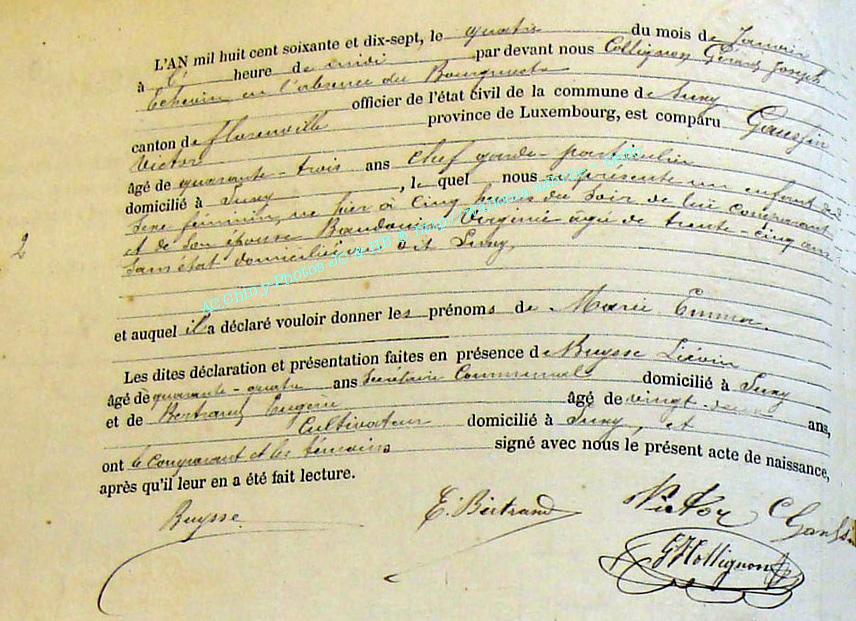 L'AN mil huit cent soixante et dix-sept, le quatre du mois de Janvier
à l' heure de midi par devant nous Collignon Gérard Joseph
Echevin en l'absence du Bourgmestre
officier de l'état civil de la commune de Suxy
canton de Florenville province de Luxembourg, est comparu Goussin
Victor
âgé de quarante-trois ans chef garde-particulier
domicilié à Suxy, le quel nous représente un enfant du
sexe féminin, né hier à cinq heures du soir de lui comparant
et de son épouse Baudouin Virginie âgée de trente-cinq ans
sans état domiciliée à dit Suxy,
AC Chiny-Photos
2
et auquel il a déclaré vouloir donner les prénoms de Marie Emma.
Les dites déclaration et présentation faites en présence de Buysse Liévin
âgé de quarante-quatre ans Secrétaire Communal domicilié à Suxy
et de Bertrand Eugène âgé de vingt ans,
Cultivateur domicilié à Suxy, et
ont le comparant et les témoins signé avec nous le présent acte de naissance,
après qu'il leur en a été fait lecture.
Buysse E. Bertrand Victor
Collignon